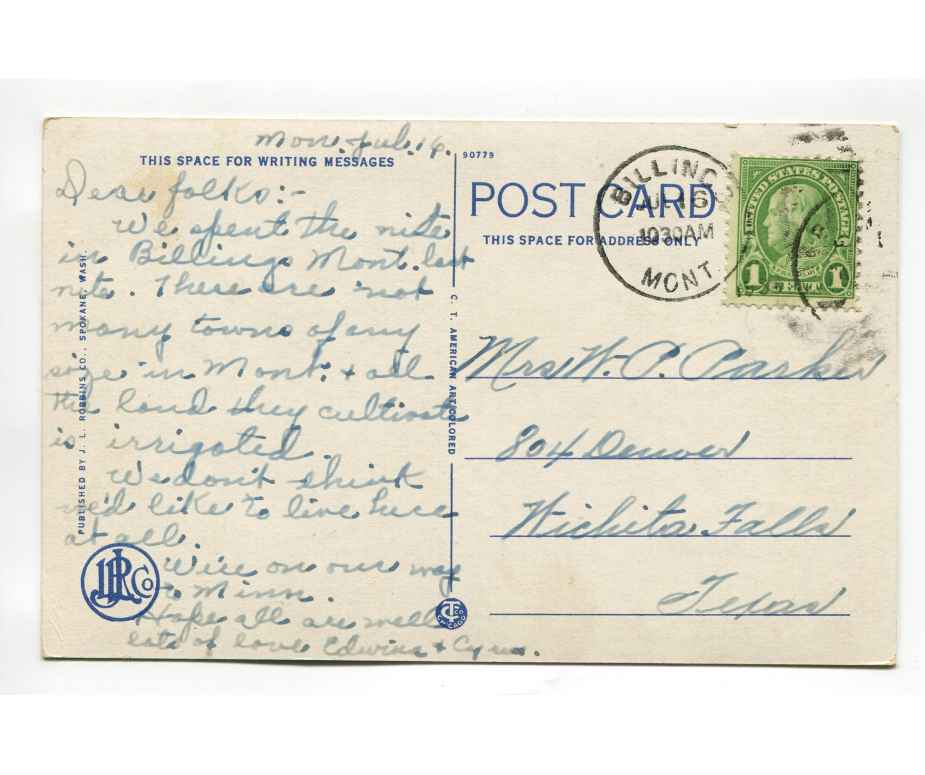 Mon. Jul. 16.
THIS SPACE FOR WRITING MESSAGES
Dear folks:-
We spent the nite
in Billings Mont. last
nite. There are not
many towns of any
size in Mont. + all
the land they cultivate
is irrigated.
We don't think
we'd like to live here
at all.
We're on our way
to Minn.
Hope all are well
Lots of love Edwina + Cyrus.
PUBLISHED BY J. L. ROBBINS CO., SPOKANE, WASH.
JLR Co
C. T. AMERICAN ART COLORED
CHICAGO
90779
POST CARD
THIS SPACE FOR ADDRESS ONLY
BILLINGS
JUL 16
1030AM
MONT.
UNITED STATES POSTAGE
1 CENT 1
Mrs W. P. Parker
804 Denver
Wichita Falls
Texas